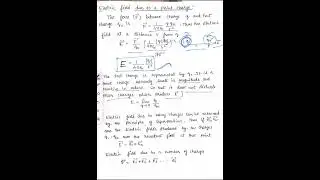 Electric field due to a point charge
The force (F) between charge q and test
charge q₀ is F = 1/4πε₀ qq₀/r² Thus the electric
field at a distance r from q
E = F/q₀ =
E = 1/4πε₀ q/r²
The test charge is represented by q₀. It is a
point charge usually small in magnitude and
positive in nature. So that it does not disturb
other charges which produce E.
E = lim F/q₀
Electric field due to many charges can be obtained
by the principle of superposition. Thus if E₁, E₂
are the electric fields produced by two charges
q₁, q₂ now the resultant field at that point
E = E₁ + E₂
Electric field due to n number of charges
E = E₁ + E₂ + E₃ +